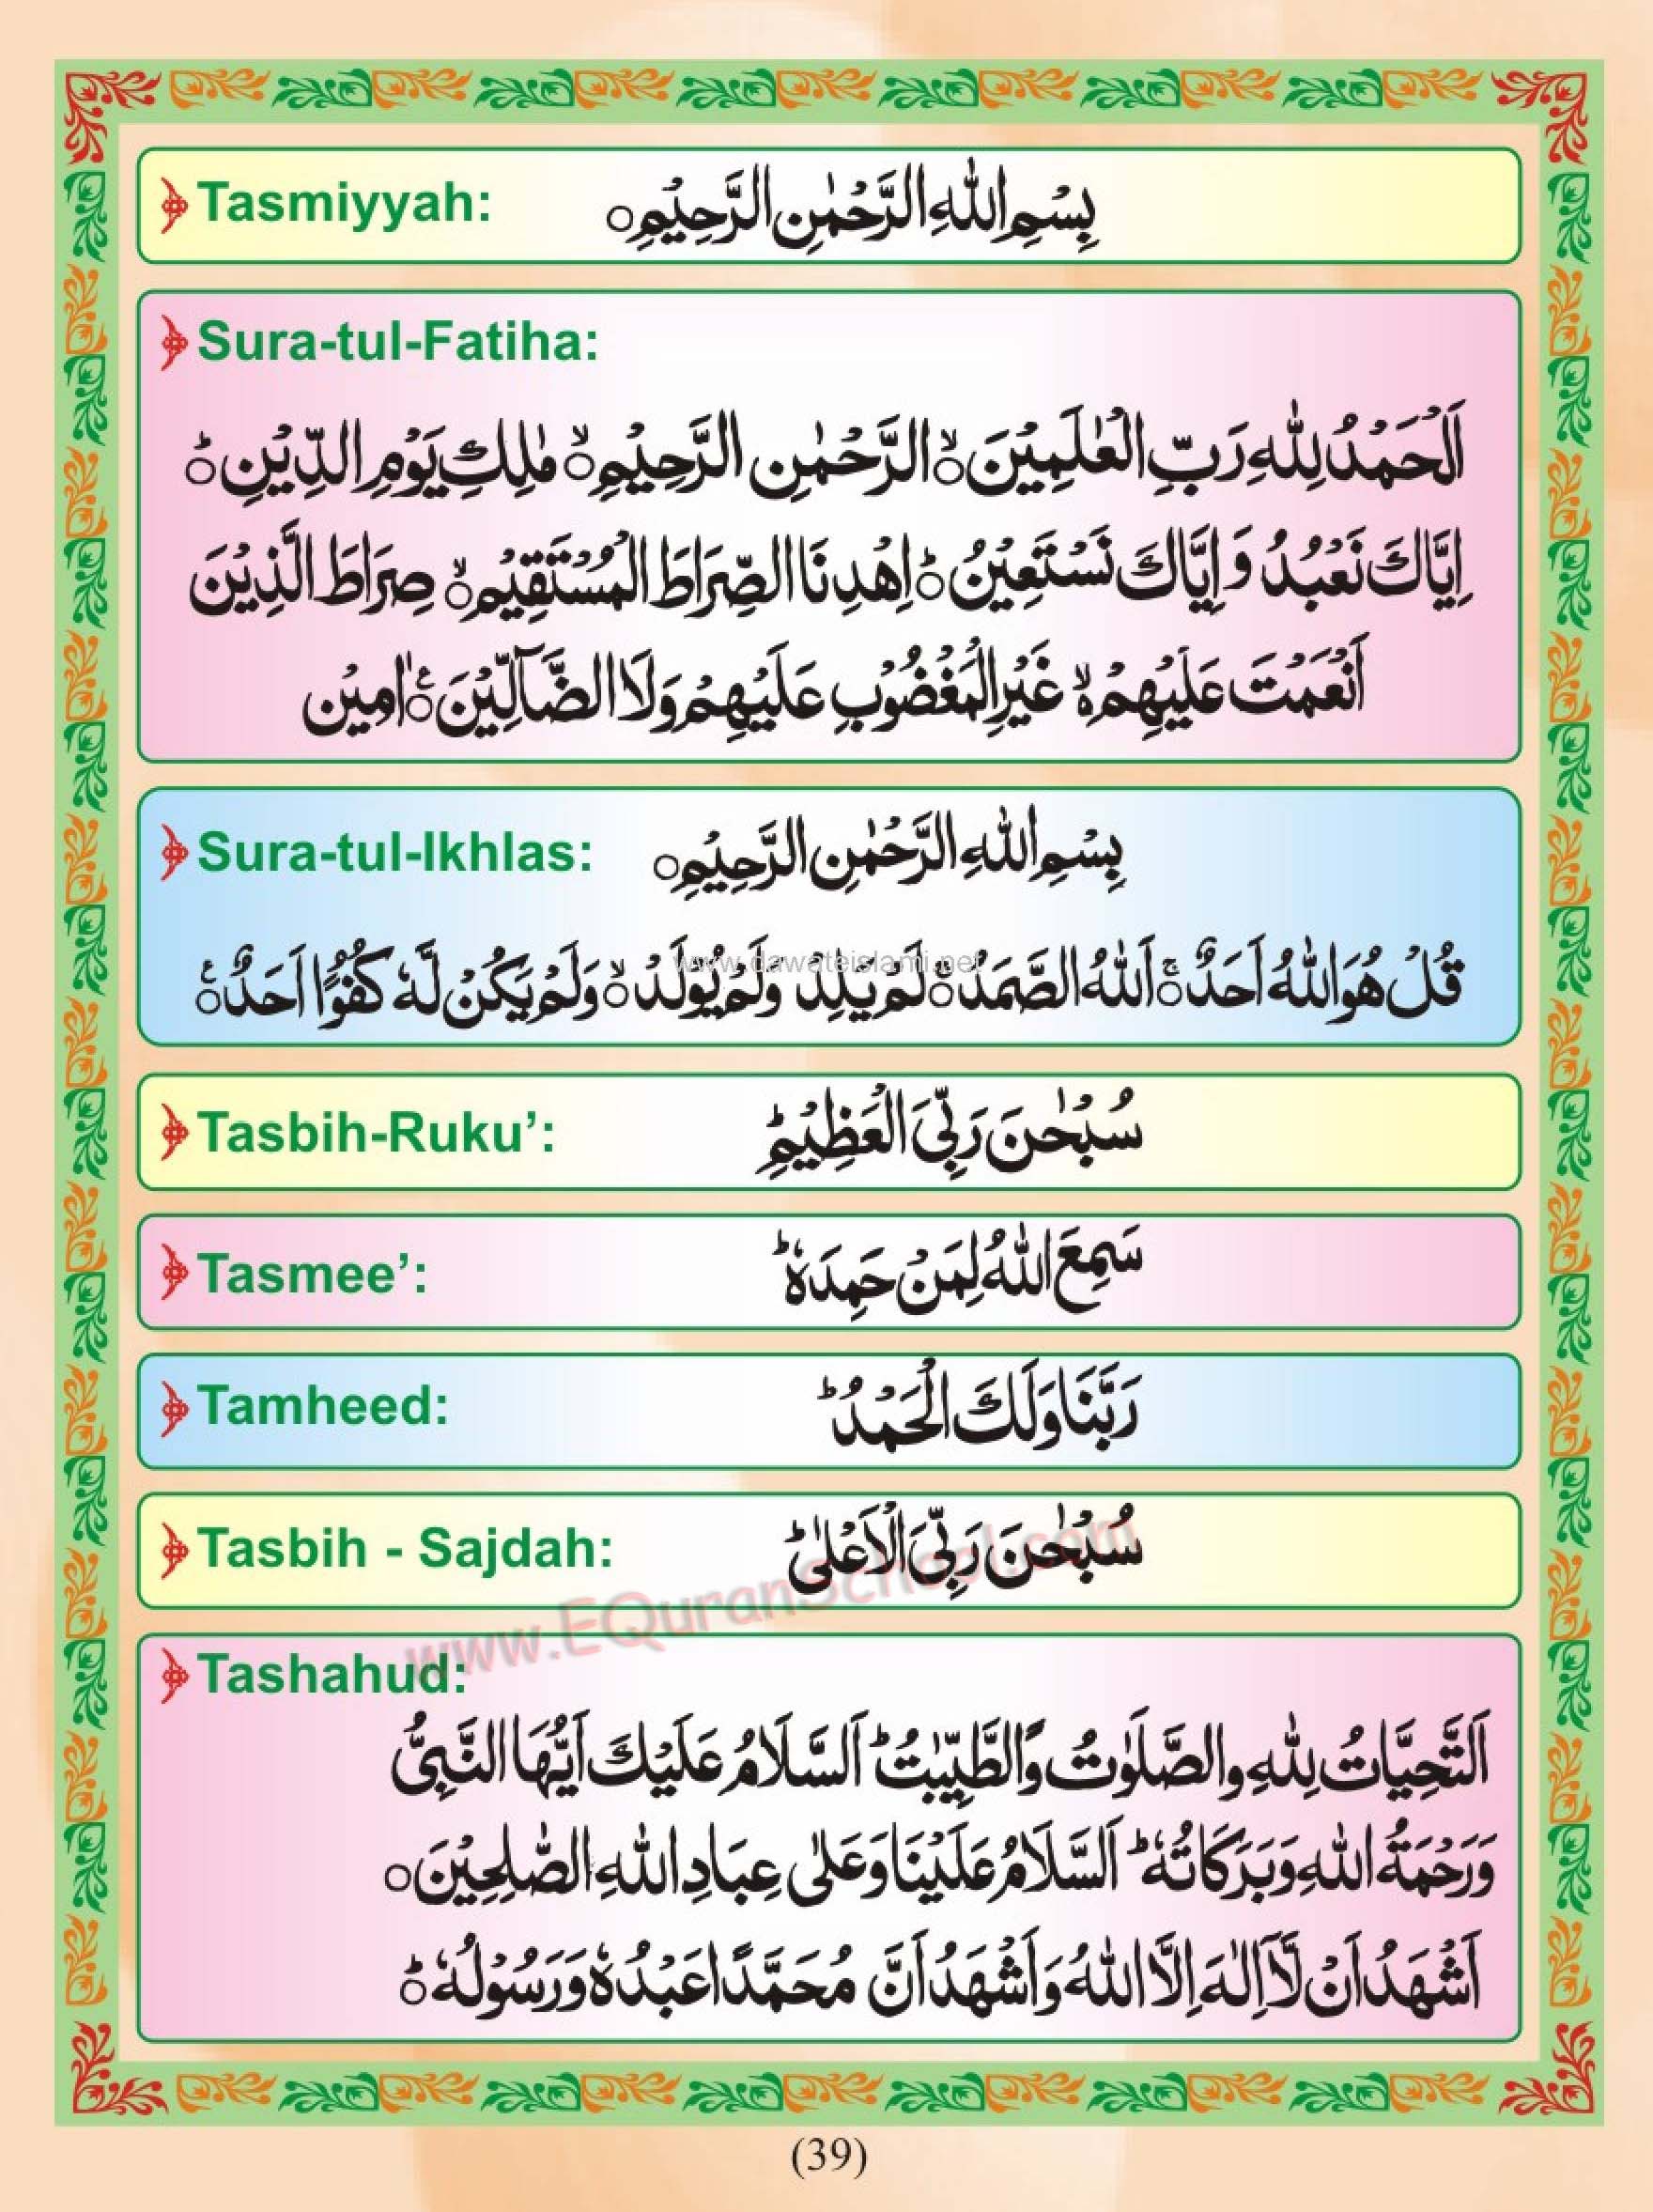 Tasmiyyah: بِسْمِ اللّٰهِ الرَّحْمٰنِ الرَّحِیْمِ○
Sura-tul-Fatiha:
اَلْحَمْدُ لِلّٰهِ رَبِّ الْعٰلَمِیْنَ○ۙ الرَّحْمٰنِ الرَّحِیْمِ○ۙ مٰلِكِ یَوْمِ الدِّیْنِ○ؕ
اِیَّاكَ نَعْبُدُ وَ اِیَّاكَ نَسْتَعِیْنُ○ؕ اِهْدِنَا الصِّرَاطَ الْمُسْتَقِیْمَ○ۙ صِرَاطَ الَّذِیْنَ
اَنْعَمْتَ عَلَیْهِمْ○ۙ غَیْرِ الْمَغْضُوْبِ عَلَیْهِمْ وَلَا الضَّآلِّیْنَ○۠ اٰمِیْن
Sura-tul-Ikhlas: بِسْمِ اللّٰهِ الرَّحْمٰنِ الرَّحِیْمِ○
www.dawateislami.net
قُلْ هُوَ اللّٰهُ اَحَدٌ○ۚ اَللّٰهُ الصَّمَدُ○ۚ لَمْ یَلِدْ وَلَمْ یُوْلَدْ○ۙ وَلَمْ یَكُنْ لَّهٗ كُفُوًا اَحَدٌ○۠
Tasbih-Ruku’: سُبْحٰنَ رَبِّیَ الْعَظِیْمِؕ
Tasmee’: سَمِعَ اللّٰهُ لِمَنْ حَمِدَهٗؕ
Tamheed: رَبَّنَا وَلَكَ الْحَمْدُؕ
Tasbih - Sajdah: سُبْحٰنَ رَبِّیَ الْاَعْلٰیؕ
www.EQuranSchool.com
Tashahud:
اَلتَّحِیَّاتُ لِلّٰهِ والصَّلَوٰتُ وَالطَّیِّبٰتُؕ اَلسَّلَامُ عَلَیْكَ اَیُّهَا النَّبِیُّ
وَرَحْمَةُ اللّٰهِ وَبَرَكَاتُهٗؕ اَلسَّلَامُ عَلَیْنَا وَعَلٰی عِبَادِ اللّٰهِ الصّٰلِحِیْنَ○
اَشْهَدُ اَنْ لَّاۤ اِلٰهَ اِلَّا اللّٰهُ وَاَشْهَدُ اَنَّ مُحَمَّدًا عَبْدُهٗ وَرَسُوْلُهٗ○ؕ
(39)